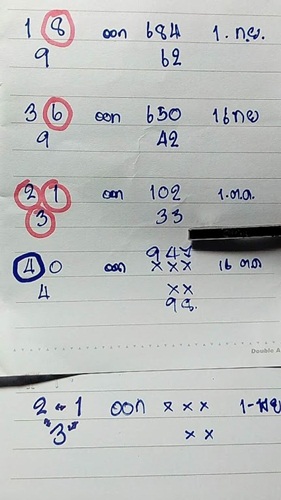 1 8 ออก 684 1. ก.ย.
9 62
36 ออก 650 16 กย
9 42
21 ออก 102 1.ต.ค.
3 33
947
40 ออก xxx 16 ตค
4 xx
98.
Double A
2-1 ออก xxx 1-พย
"3" xx